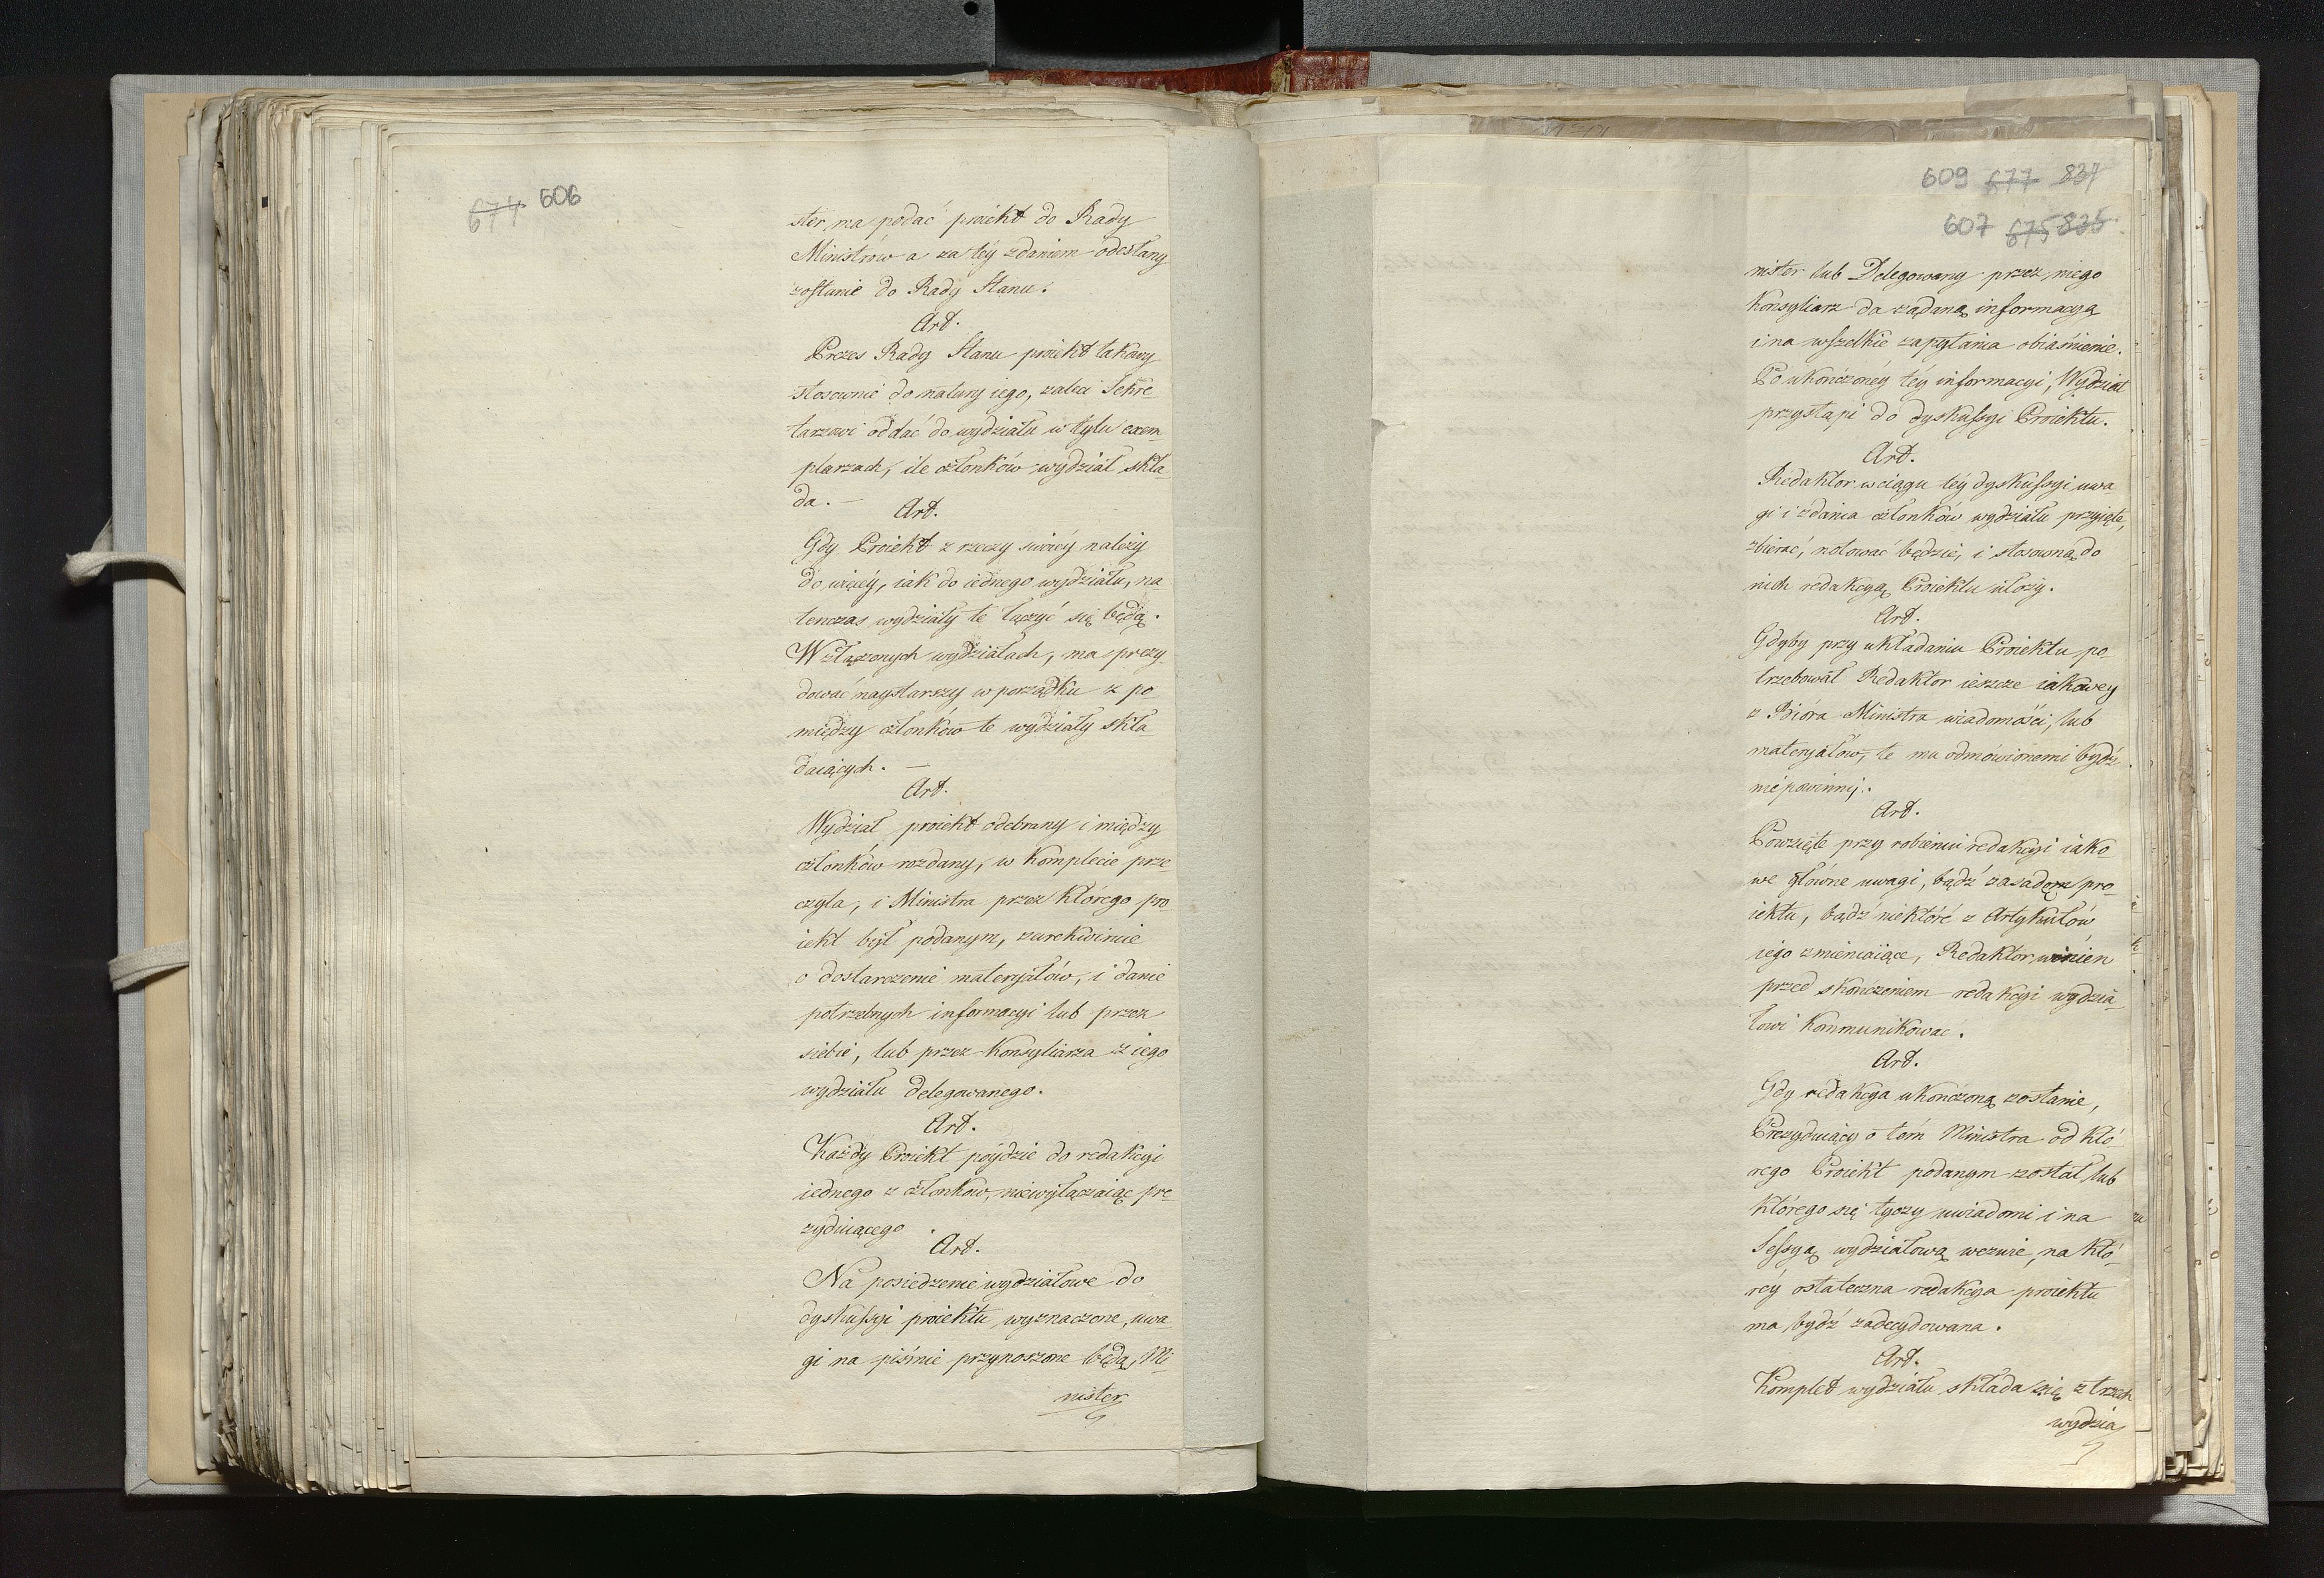 674 606
ster, ma podać proiekt do Rady
Ministrów a za téy zdaniem odesłany
zostanie do Rady Stanu.
Art.
Prezes Rady Stanu proiekt takowy
stosownie do natury iego, zaleci Sekre-
tarzowi oddać do wydziału w tylu exem-
plarzach, ile członków wydział skła-
da. —
Art.
Gdy Proiekt z rzeczy swoiéy należy
do więcéy, iak do iednego wydziału, na-
tenczas wydziały te łączyć się będą.
W złączonych wydziałach, ma prezy-
dować naystarszy w porządku z po
między członków te wydziały skła-
daiących. —
Art.
Wydział proiekt odebrany i między
członków rozdany, w komplecie prze-
czyta, i Ministra przez którego pro-
iekt był podanym, zarekwiruie
o dostarczenie materyałów, i danie
potrzebnych informacyi lub przez
siebie, lub przez Konsyliarza z iego
wydziału delegowanego.
Art.
Każdy Proiekt póydzie do redakcyi
iednego z członków, niewyłączaiąc pre-
zyduiącego.
Art.
Na posiedzenie wydziałowe do
dyskussyi proiektu wyznaczone, uwa-
gi na piśmie przynoszone będą, Mi-
nister
609 677 837
607 675 835
nister lub Delegowany przez niego
Konsyliarz da żądaną informacyą
i na wszelkie zapytania obiaśnienie.
Po ukończonéy téy informacyi, Wydział
przystąpi do dyskussyi Proiektu.
Art.
Redaktor w ciągu téy dyskussyi uwa
gi i zdania członków wydziału przyięte,
zbierać, notować będzie, i stosowną do
nich redakcyą Proiektu ułoży.
Art.
Gdyby przy układaniu Proiektu po-
trzebował Redaktor ieszcze iakowey
z Bióra Ministra wiadomości, lub
materyałów, te mu odmówionemi bydź
nie powinny.
Art.
Powzięte przy robieniu redakcyi iako-
we główne uwagi, bądź zasadę pro-
iektu, bądź niektóre z Artykułów
iego zmieniaiące, Redaktor winien
przed skończeniem redakcyi wydzia-
łowi kommunikować.
Art.
Gdy redakcya ukończoną zostanie,
Prezyduiący o tém Ministra od któ-
rego Proiekt podanym został lub
którego się tyczy uwiadomi i na
Sessyą wydziałową wezwie, na któ-
réy ostateczna redakcya proiektu
ma bydź zadecydowana.
Art.
Komplet wydziału składa się z trzech
wydzia